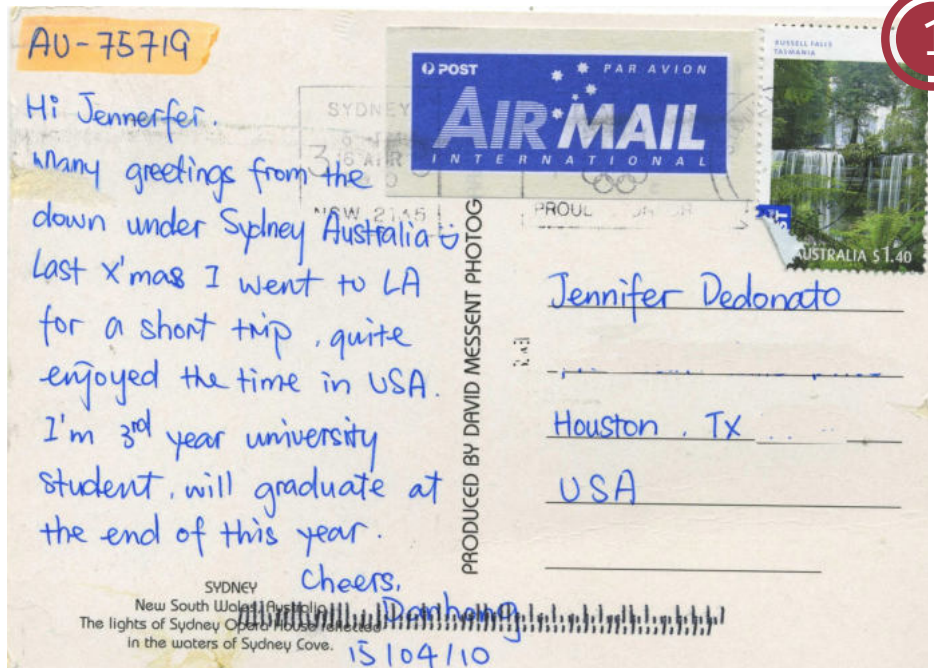 AU-75719
Hi Jennerfer.
Many greetings from the
down under Sydney Australia
Last x'mas I went to LA
for a short trip, quite
enjoyed the time in USA.
I'm 3rd year university
student, will graduate at
the end of this year.
Cheers,
Danhong
15/04/10
SYDNEY
New South Wales, Australia
The lights of Sydney Opera House reflected
in the waters of Sydney Cove.
PRODUCED BY DAVID MESSENT PHOTOG
POST
PAR AVION
AIR MAIL
INTERNATIONAL
SYDNEY
NSW 2145
PROUD
RUSSELL FALLS
TASMANIA
AUSTRALIA $1.40
1
Jennifer Dedonato
Houston, TX
USA